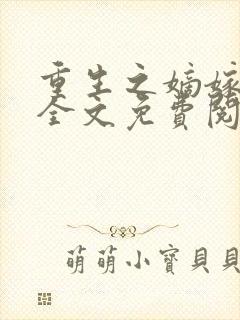 重生之嫡嫁
全文免費閱
萌萌小寶貝貝